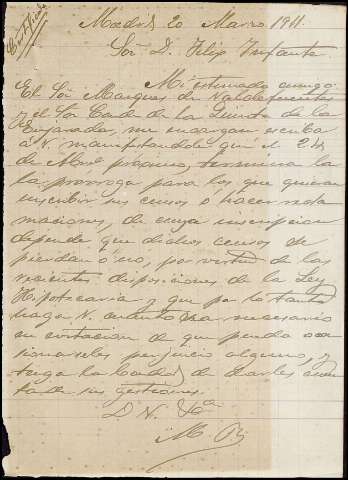 Certificado
Madrid 20 Marzo 1911.
Sor. D. Felix Infante.
Mi estimado amigo:
El Sor Marques de Valdefuentes
y el Sor Conde de la Quinta de la
Enjarada, me encargan escriba
á V. manifestandole que el 24
de Abril próximo, termina la
la prórroga para los que quieran
inscribir sus censos o hacer recla
maciones, de cuya inscripcion
depende que dichos censos se
pierdan ó no, por virtud de las
recientes disposiciones de la Ley
Hipotecaria y que por lo tanto
haga V. cuanto sea necesario
en evitacion de que pueda oca
sionarseles perjuicio alguno, y
tenga la bondad de darles cuen
ta de sus gestiones.